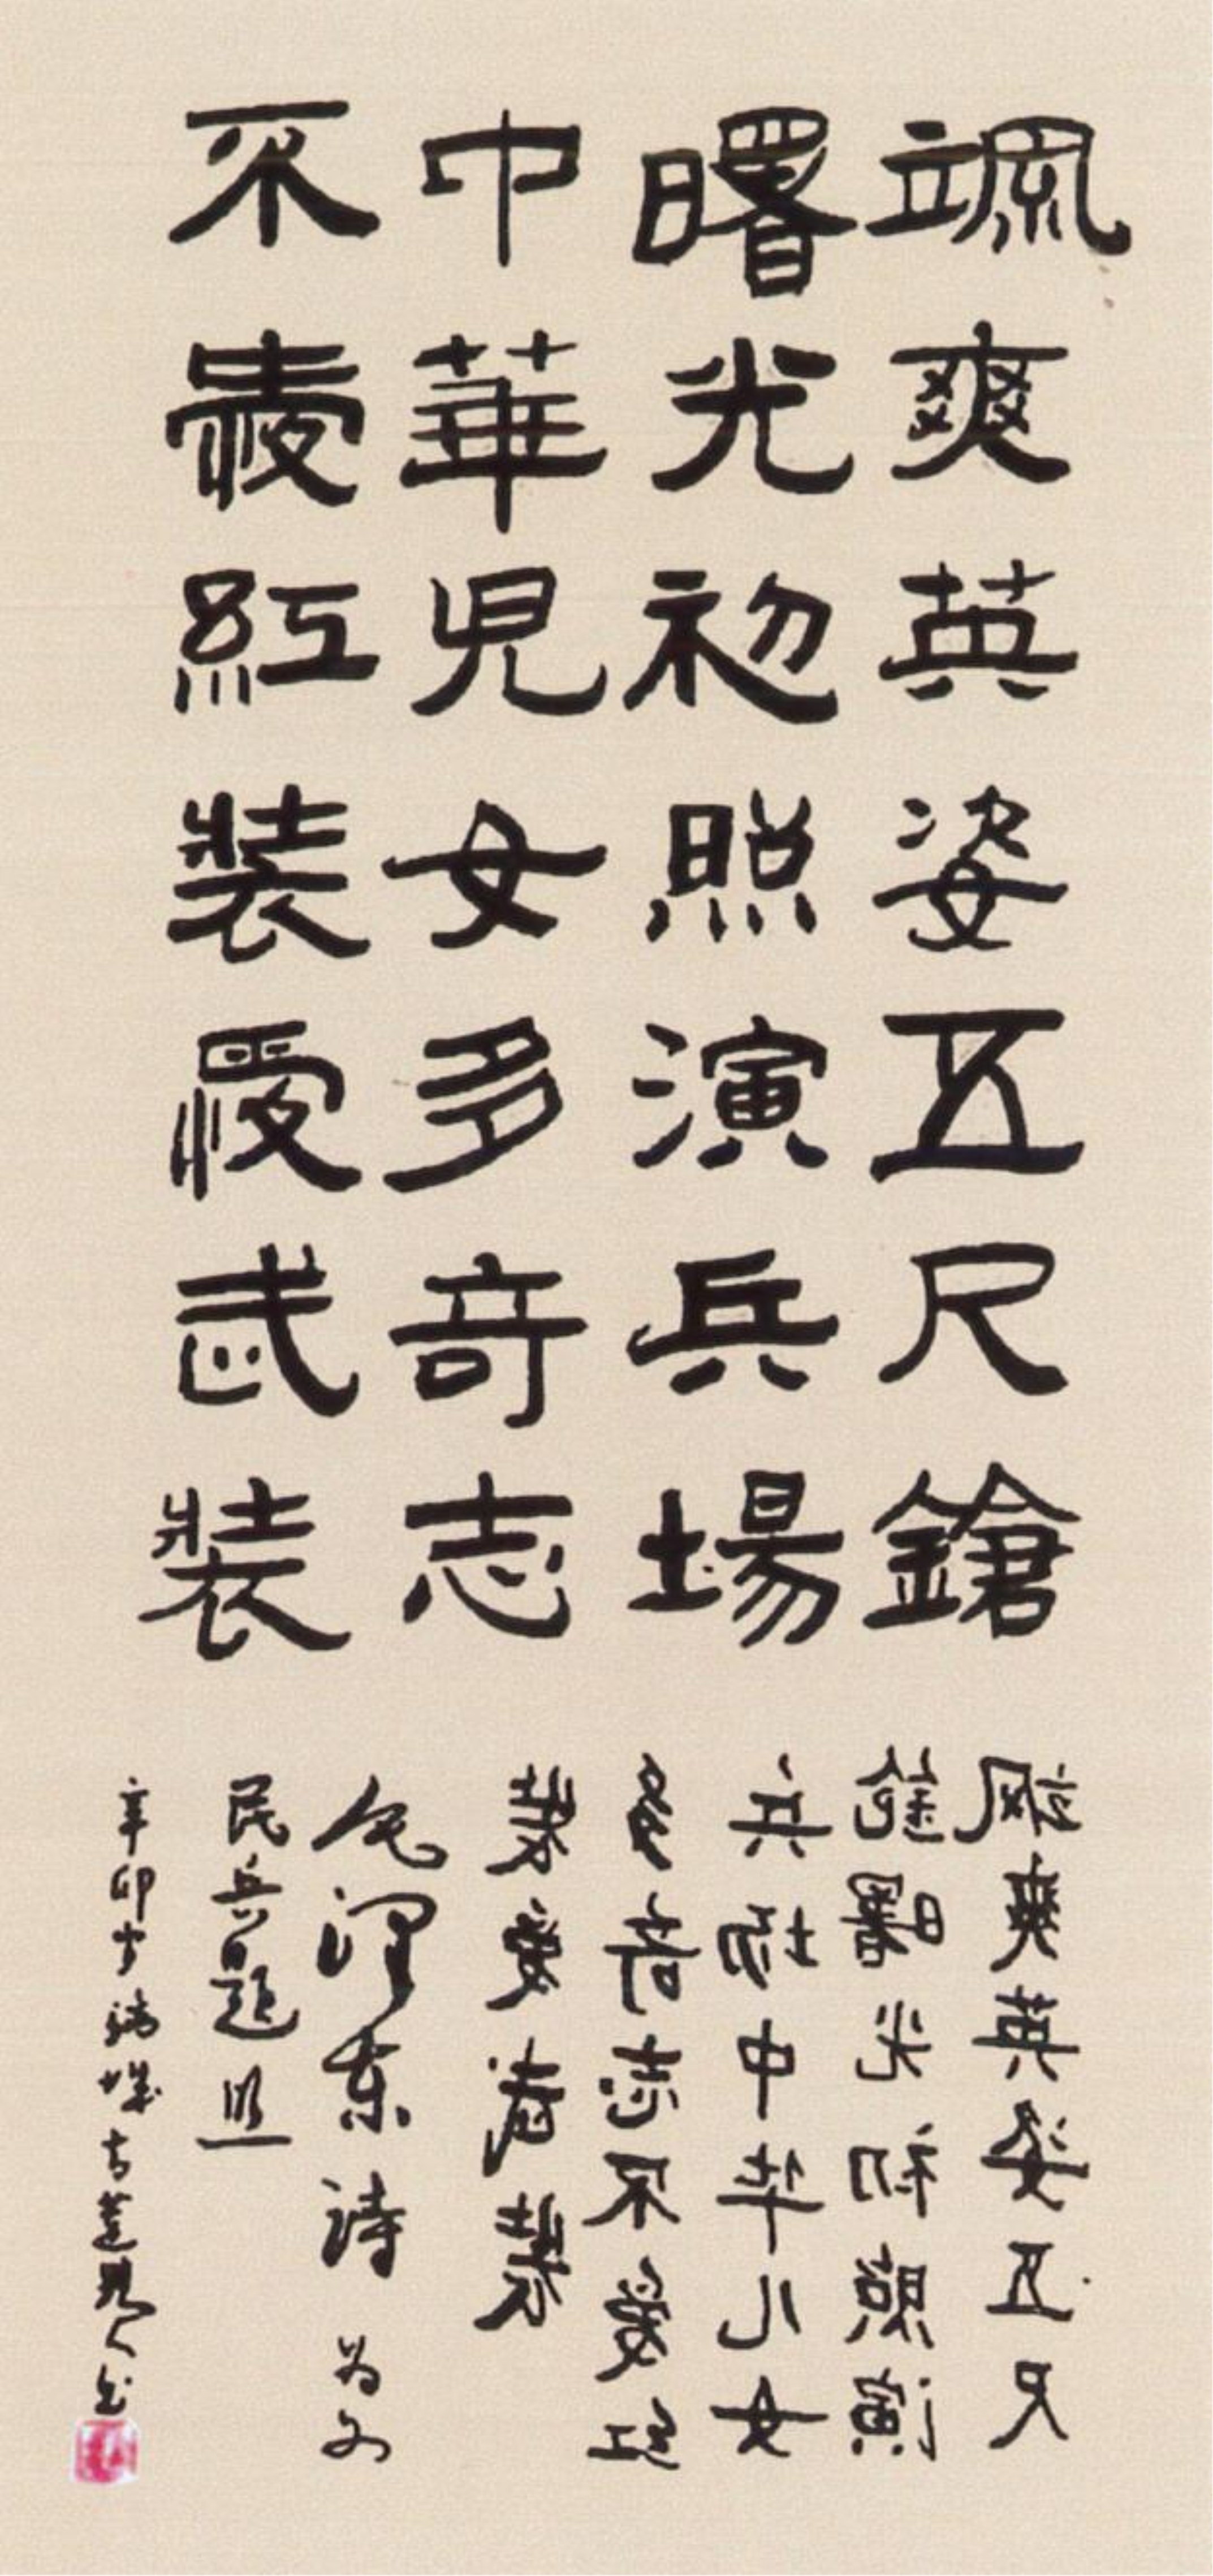 颯爽英姿五尺鎗
曙光初照演兵場
中華兒女多奇志
不愛紅裝愛武裝
飒爽英姿五尺
鎗曙光初照演
兵场中华儿女
多奇志不爱红
装爱武装
毛泽东诗 为女
民兵题照
辛卯